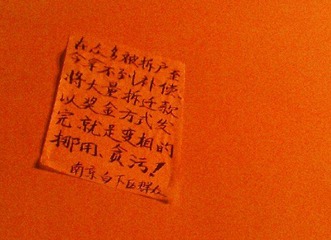 在众多被拆户至
今拿不到补偿、
将大量拆迁款
以奖金方式发
完就是变相的
挪用、贪污！
南京白下区群众